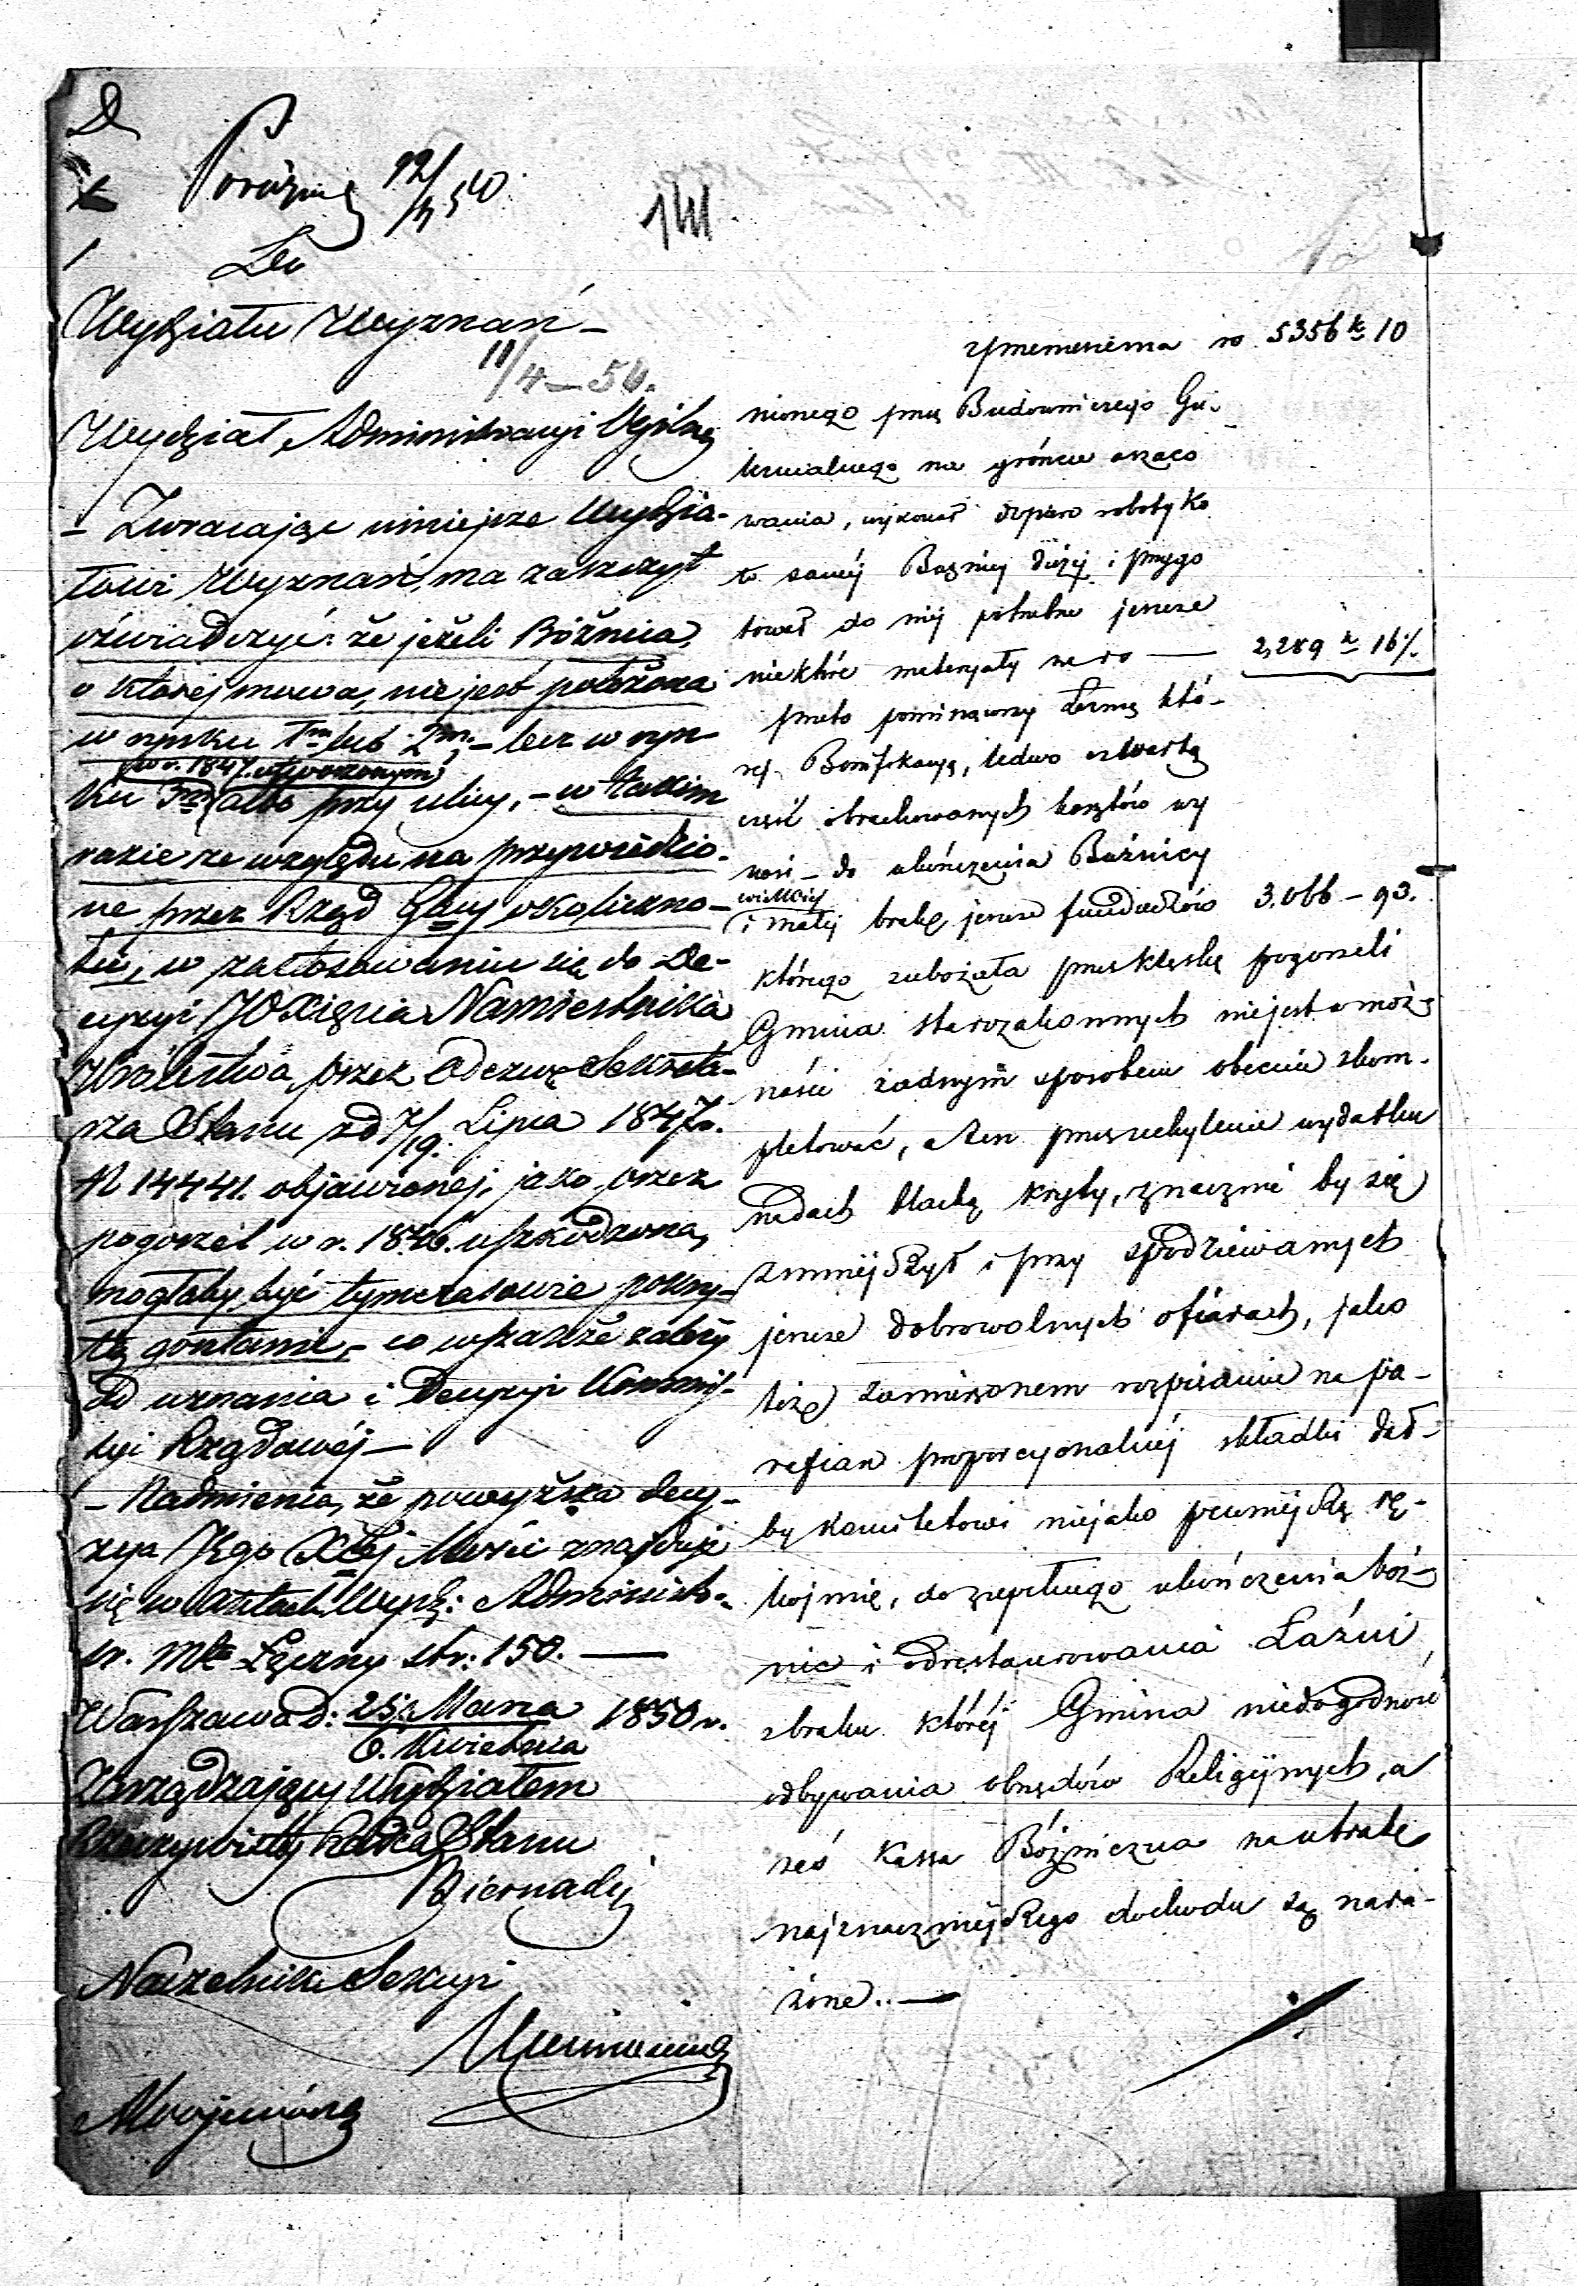 12/4 50
Do
Wydziału Wyznań –
11/4 – 50.
Wydział Administracyi Ogólnej
– Zwracając niniejsze Wydzia-
łowi Wyznań, ma zaszczyt
oświadczyć: że jeżeli Bóżnica,
o której mowa, nie jest położona
w rynku 1m lub 2m, – lecz w ryn-
w r. 1847. utworzonym
ku 3m albo przy ulicy, – w takim
razie ze względu na przywiedzio-
ne przez Rząd Gbny okoliczno-
ści, w zastosowaniu się do De-
cyzyi JO Xięcia Namiestnika
Królestwa, przez Odezwę Sekreta-
rza Stanu z d 7/19. Lipca 1847 r.
N 14441. objawionej, jako przez
pogorzel w r. 1846. uszkodzona,
mogłaby być tymczasowie pokry-
tą gontami, – co wszakże zależy
od uznania i Decyzyi Kommis-
syi Rządowéj –
– Nadmienia, że powyższa decy-
zya Jego Xcej Mości znajduje
się w aktach Wydz: Administr.
Mta Łęczny str: 150. —
Warszawa d: 25 Marca / 6. Kwietnia 1850 r.
Zarządzający Wydziałem
Rzeczywisty Radca Stanu
Biernacki
Naczelnik Sekcyi

zmienienia rs 5356 k 10
nionego przez Budowniczego Gu-
bernialnego na gróncie oszaco
wania, wykonał dopiero roboty ko
ło saméj Bożnicy dużéj i przygo
tował do niéj potrzebne jeszcze
niektóre materyały za rs — 2,289 k 16 ½
przeto pominąwszy Łaźnię któ-
réj, ledwo czwartą
część obrachowanych kosztów wy
nosi – do ukończenia Bóżnicy
wielkiéj
i małéj brakuje jeszcze funduszów 3,066 – 93.
którego zubożała przez klęskę pogorzeli
Gmina Starozakonnych nie jest w moż-
ności żadnym sposobem obecnie skom-
pletować, a ten przez uchylenie wydatku
na dach blachą kryty, znacznie by się
zmniejszył i przy spodziewanych
jeszcze dobrowolnych ofiarach, jako
też zamierzonem rozpisaniu na pa-
rafian proporcyonalnéj składki dał-
by Komitetowi niejako pewniejszą rę-
kojmię, do zupełnego ukończenia bóż-
nic i odrestaurowania Łaźni,
z braku któréj Gmina niedogodność
odbywania obrzędów Religijnych, a
zaś Kassa Bóżniczna na utratę
najznaczniejszego dochodu są nara-
żone. —